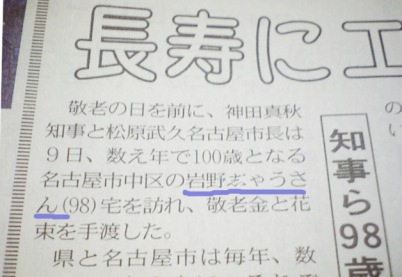 長寿にエ
敬老の日を前に、神田真秋
知事と松原武久名古屋市長は
９日、数え年で100歳となる
名古屋市中区の岩野志やうさ
ん(98)宅を訪れ、敬老金と花
束を手渡した。
県と名古屋市は毎年、数
知事ら98歳
の
い